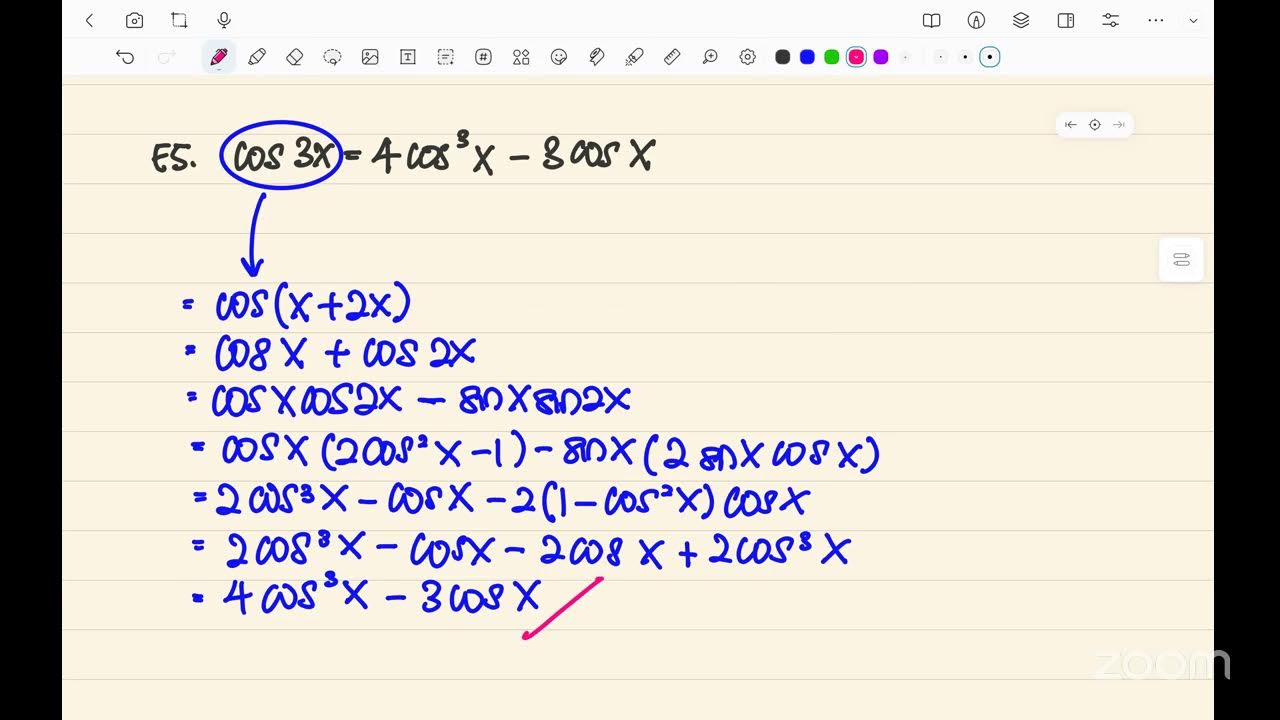 E5. cos 3x = 4 cos³ x − 3 cos x
= cos(x + 2x)
= cos x + cos 2x
= cos x cos 2x − sin x sin 2x
= cos x (2 cos² x − 1) − sin x (2 sin x cos x)
= 2 cos³ x − cos x − 2(1 − cos² x) cos x
= 2 cos³ x − cos x − 2 cos x + 2 cos³ x
= 4 cos³ x − 3 cos x
zoom